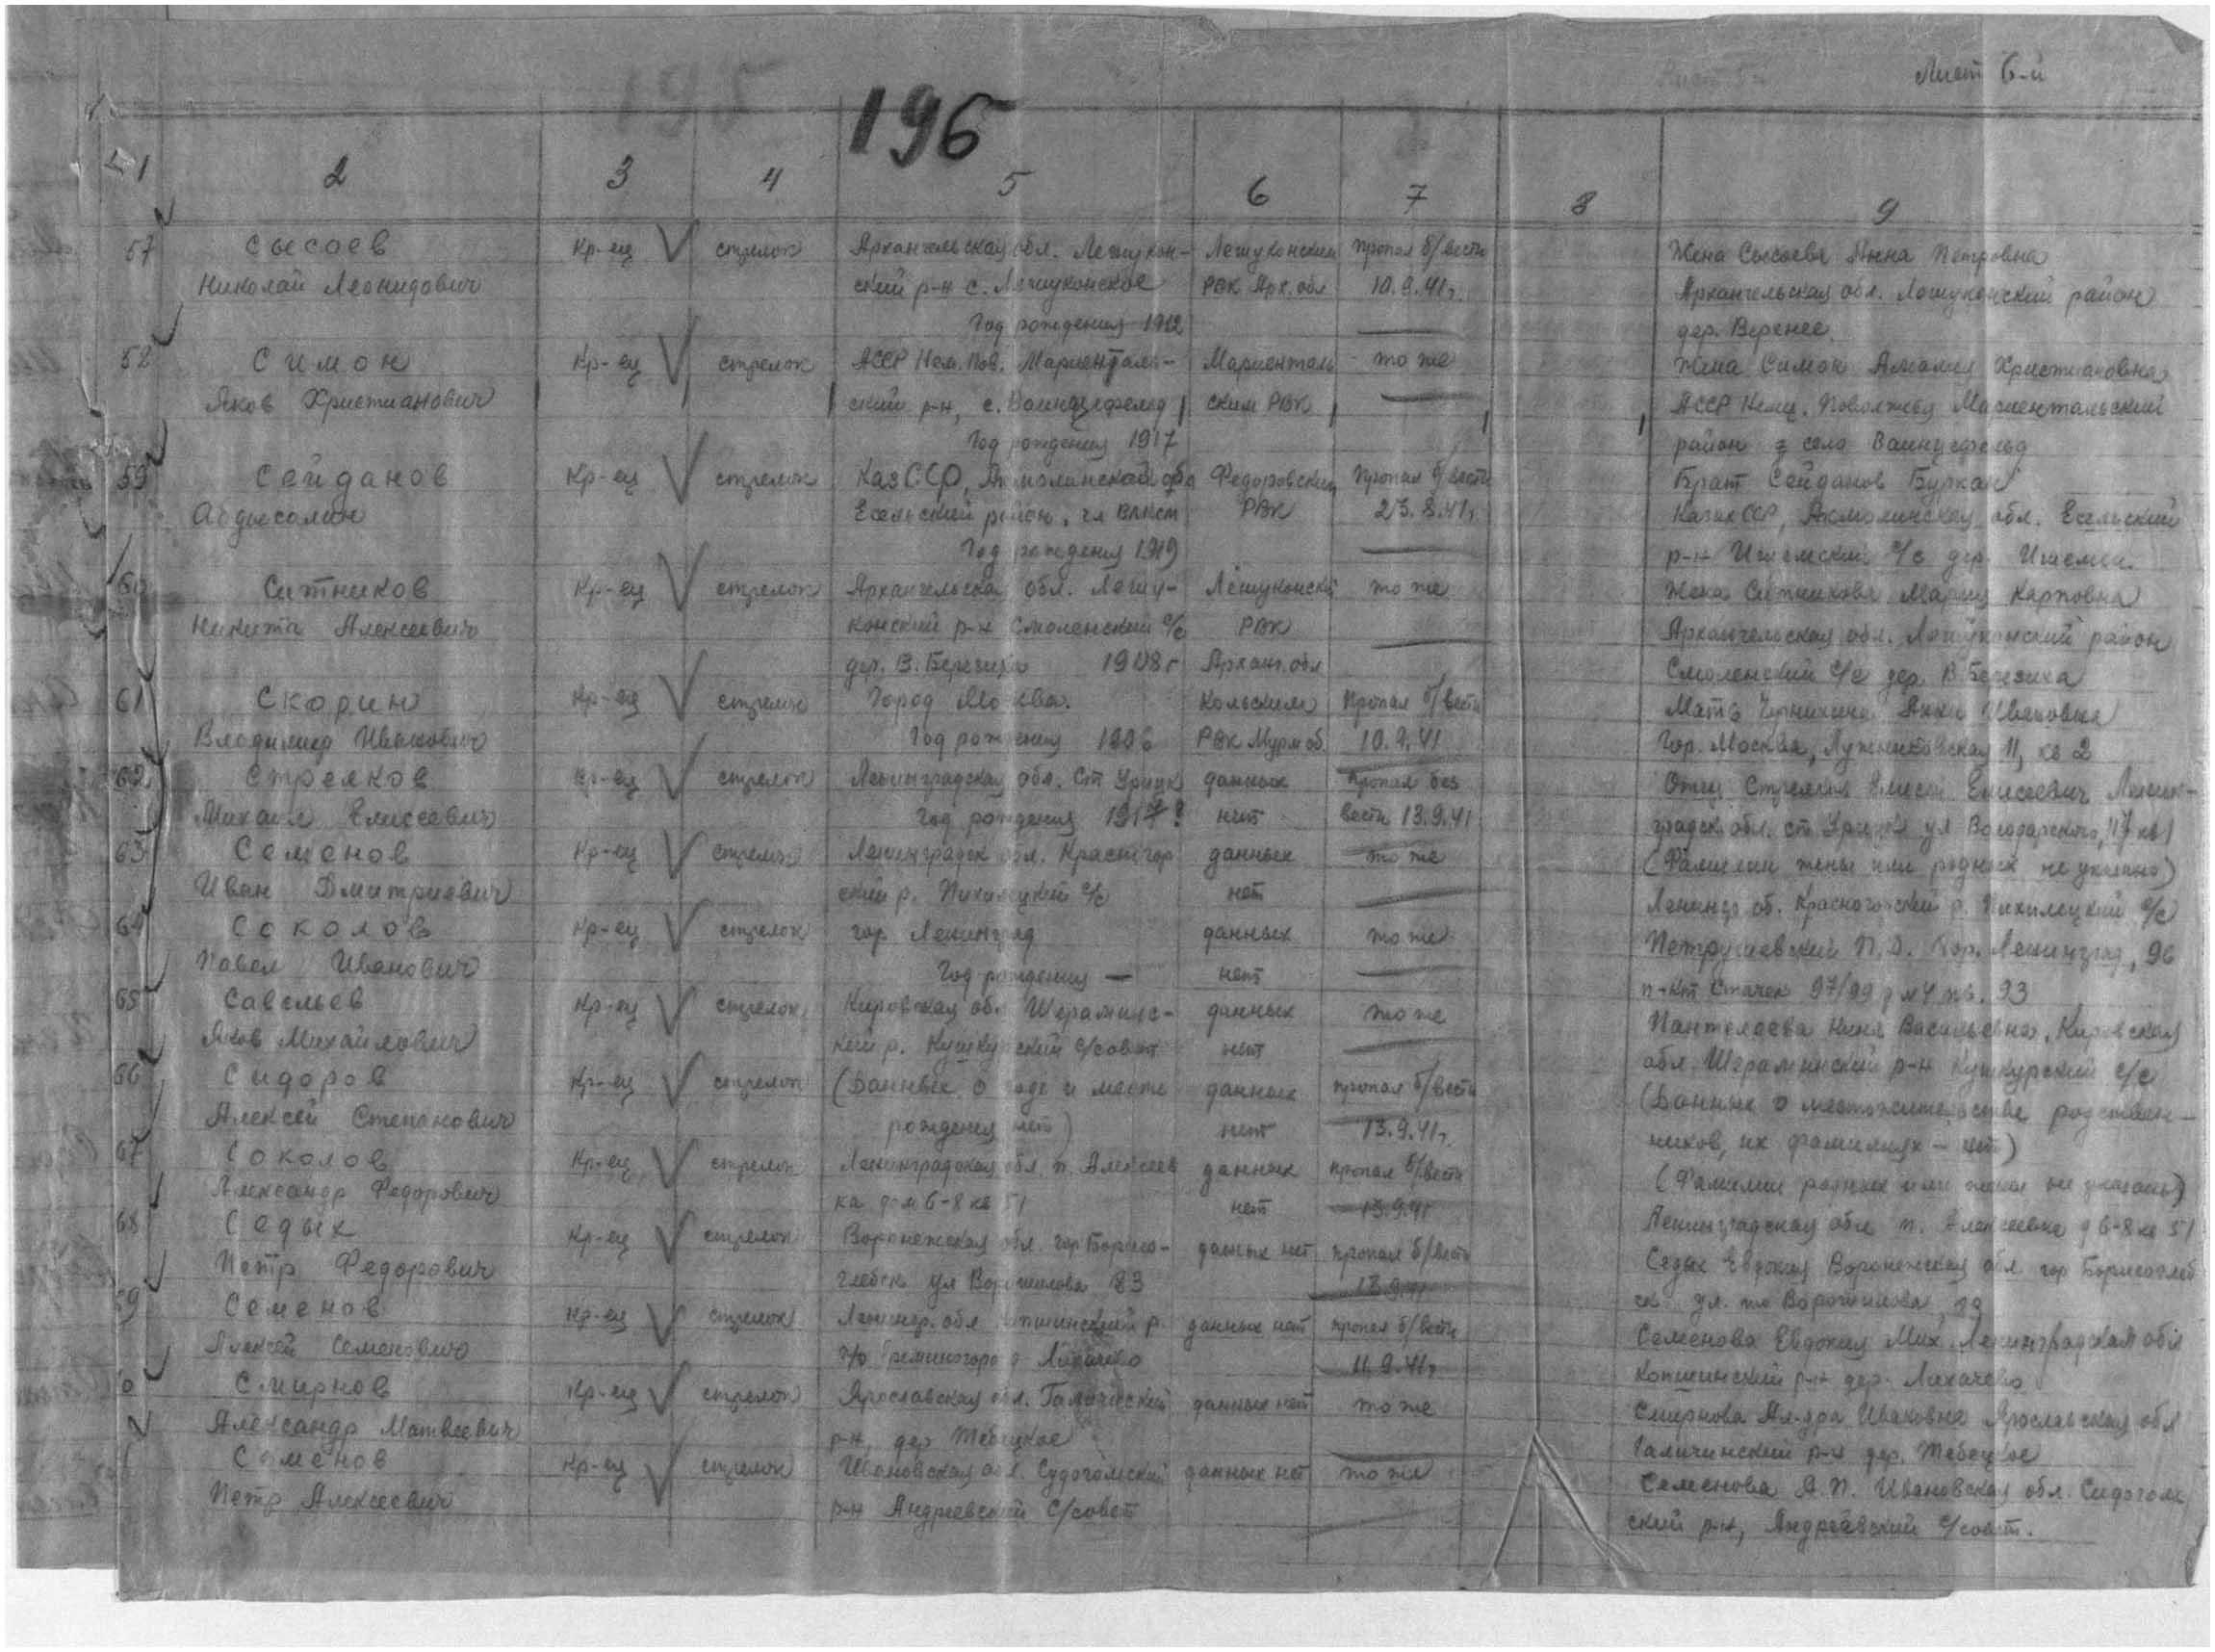 Лист 6-й
195
196
1 2 3 4 5 6 7 8 9
57 Сысоев Кр-ец стрелок Архангельская обл. Лешукон- Лешуконским пропал б/вести Жена Сысоева Анна Петровна
Николай Леонидович ский р-н с. Лешуконское РВК Арх. обл 10.9.41г. Архангельская обл. Лешуконский район
Год рождения 1912 дер. Верхнее
58 Симон Кр-ец стрелок АССР Нем. Пов. Мариенталь- Мариенталь то же Жена Симон Амалия Христиановна
Яков Христианович ский р-н, с. ским РВК АССР Немц. Поволжья Мариентальский
Год рождения 1917 район село
59 Сейданов Кр-ец стрелок КазССР, Акмолинской обл Федоровским Пропал б/вести Брат Сейданов Буркан
Абдысалим Есельский район, чл ВЛКСМ РВК 23.8.41г. Казах ССР, Акмолинская обл. Есельский
Год рождения 1919 р-н с/с дер.
60 Ситников Кр-ец стрелок Архангельская обл. Лешу- Лешуконский то же Жена Ситникова Мария Карповна
Никита Алексеевич конский р-н Смоленский с/с РВК Архангельская обл. Лешуконский район
дер. В. Березиха 1908г Арханг. обл Смоленский с/с дер. В Березиха
61 Скорин Кр-ец стрелок Город Москва. Кольским Пропал б/вести Мать Анна Ивановна
Владимир Иванович Год рождения 1906 РВК Мурм об. 10.9.41 Гор. Москва, Лужниковская 11, кв 2
62 Стрелков Кр-ец стрелок Ленинградская обл. Ст Урицк данных Пропал без Отец Стрелков Елисей Елисеевич Ленин-
Михаил Елисеевич Год рождения 1917? нет вести 13.9.41 градск. обл. ст Урицк ул Володарского, 17 кв 1
63 Семенов Кр-ец стрелок Ленинградск обл. Красногор данных то же (Фамилии жены или родных не указано)
Иван Дмитриевич ский р. с/с нет Ленингр об. Красногорский р. с/с
64 Соколов Кр-ец стрелок гор Ленинград данных то же Гор. Ленинград, 96
Павел Иванович Год рождения — нет п-кт Стачек 97/99 кв. 93
65 Савельев Кр-ец стрелок Кировская обл данных то же Пантелеева Нина Васильевна, Кировская
Яков Михайлович кий р. с/совет нет обл. р-н Кушкурский с/с
66 Сидоров Кр-ец стрелок (Данных о годе и месте данных пропал б/вести (Данных о местожительстве родствен-
Алексей Степанович рождения нет) нет 13.9.41г. ников, их фамилиях – нет)
67 Соколов Кр-ец стрелок Ленинградская обл. п. Алексеев данных пропал б/вести (Фамилии родных или жены не указаны)
Александр Федорович ка дом 6-8 кв 51 нет 13.9.41 Ленинградская обл п. Алексеевка д 6-8 кв 51
68 Седых Кр-ец стрелок Воронежская обл. гор Борисо- данных нет пропал б/вести Седых Евдокия Воронежская обл. гор Борисоглеб
Петр Федорович глебск ул Ворошилова 83 13.9.41 ск ул.
69 Семенов Кр-ец стрелок Ленингр. обл р. данных нет пропал б/вести Семенова Евдокия Мих. Ленинградская обл
Алексей Семенович п/о Лихачево 11.9.41г Капшинский р-н дер. Лихачево
0 Смирнов Кр-ец стрелок Ярославская обл. Галичский данных нет то же Смирнова Ал-дра Ивановна Ярославская обл
Александр Матвеевич р-н, дер Галичинский р-н дер.
1 Семенов Кр-ец стрелок Ивановская обл. Судогодский данных нет то же Семенова А.П. Ивановская обл.
Петр Алексеевич р-н Андреевский с/совет ский р-н, Андреевский с/совет.